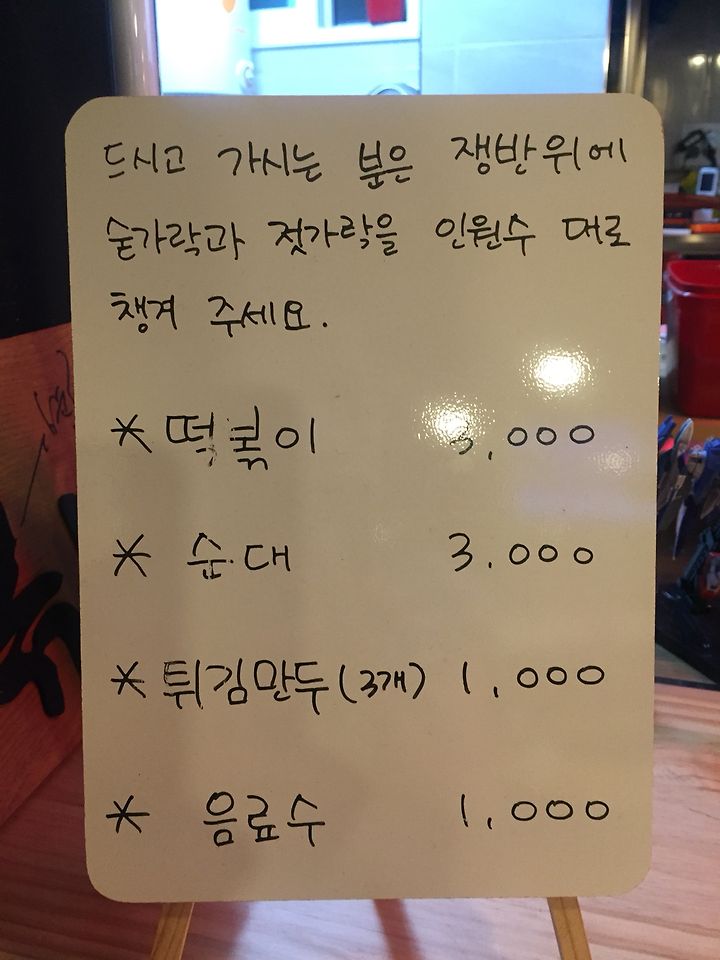 드시고 가시는 분은 쟁반위에
숟가락과 젓가락을 인원수 대로
챙겨 주세요.
* 떡볶이 3,000
* 순대 3.000
* 튀김만두(3개) 1,000
* 음료수 1,000